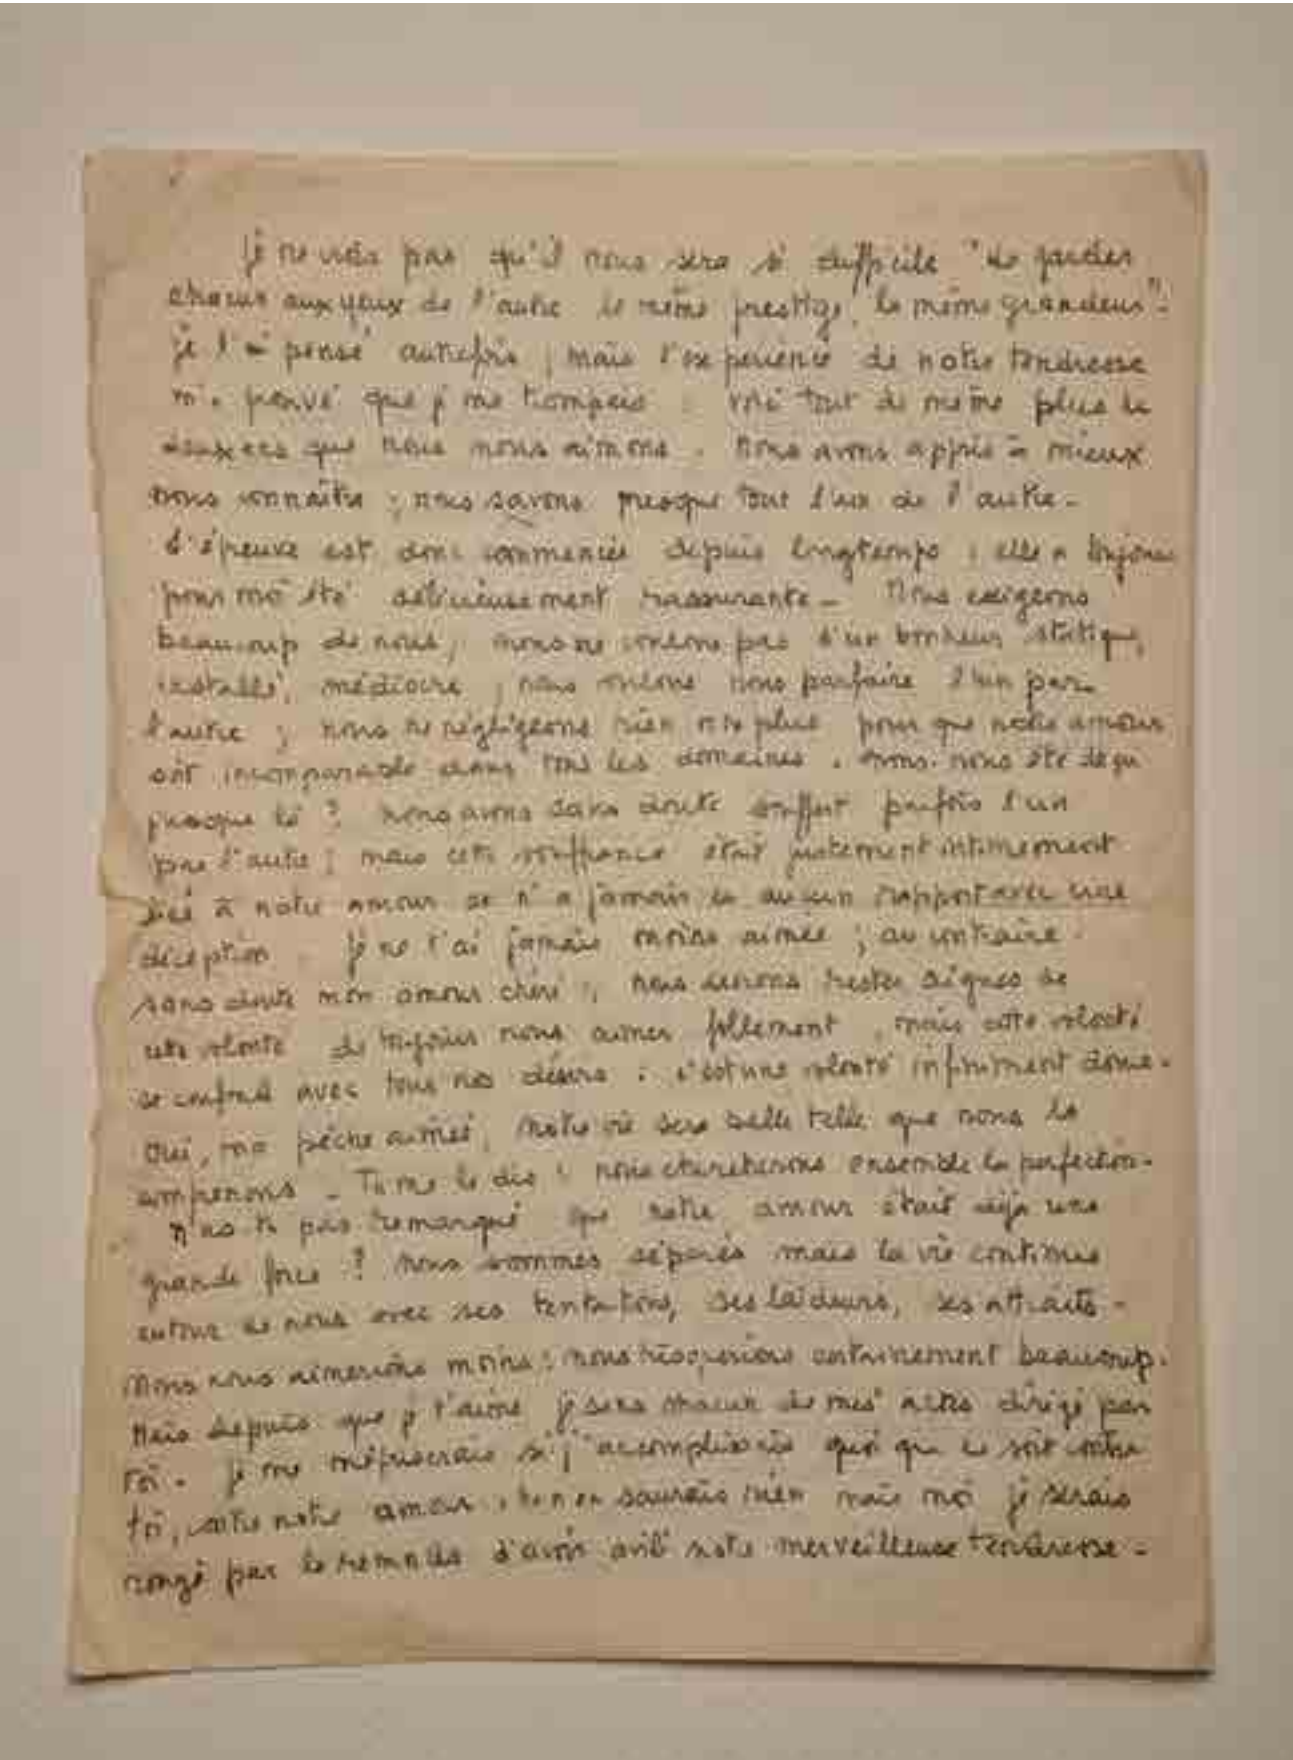 Je ne crois pas qu'il nous sera si difficile "de garder
chacun aux yeux de l'autre le même prestige, la même grandeur".
Je l'ai pensé autrefois ; mais l'expérience de notre tendresse
m'a prouvé que je me trompais : voici tout de même plus de
deux ans que nous nous aimons. Nous avons appris à mieux
nous connaître ; nous savons presque tout l'un de l'autre.
L'épreuve est donc commencée depuis longtemps : elle a toujours
pour moi été délicieusement rassurante. Nous exigeons
beaucoup de nous ; nous ne voulons pas d'un bonheur statique,
installé, médiocre ; nous voulons nous parfaire l'un par
l'autre ; nous ne négligeons rien non plus pour que notre amour
soit incomparable dans tous les domaines. Avons-nous été déçu
jusque là ? Nous avons sans doute souffert parfois l'un
par l'autre ; mais cette souffrance était justement intimement
liée à notre amour et n'a jamais eu aucun rapport avec une
déception. Je ne t'ai jamais moins aimée ; au contraire.
Sans doute mon amour chéri, nous devrons rester dignes de
cette volonté de toujours nous aimer follement, mais cette volonté
se confond avec tous nos désirs : c'est une volonté infiniment douce.
Oui, ma pêche aimée, notre vie sera belle telle que nous la
comprenons. Tu me le dis : nous chercherons ensemble la perfection.
N'as-tu pas remarqué que notre amour était déjà une
grande force ? Nous sommes séparés mais la vie continue
autour de nous avec ses tentations, ses laideurs, ses attraits.
Nous nous aimerions moins : nous risquerions certainement beaucoup.
Mais depuis que je t'aime je sens chacun de mes actes dirigé par
toi. Je me mépriserais si j'accomplissais quoi que ce soit contre
toi, contre notre amour : tu n'en saurais rien mais moi je serais
rongé par le remords d'avoir avili notre merveilleuse tendresse.